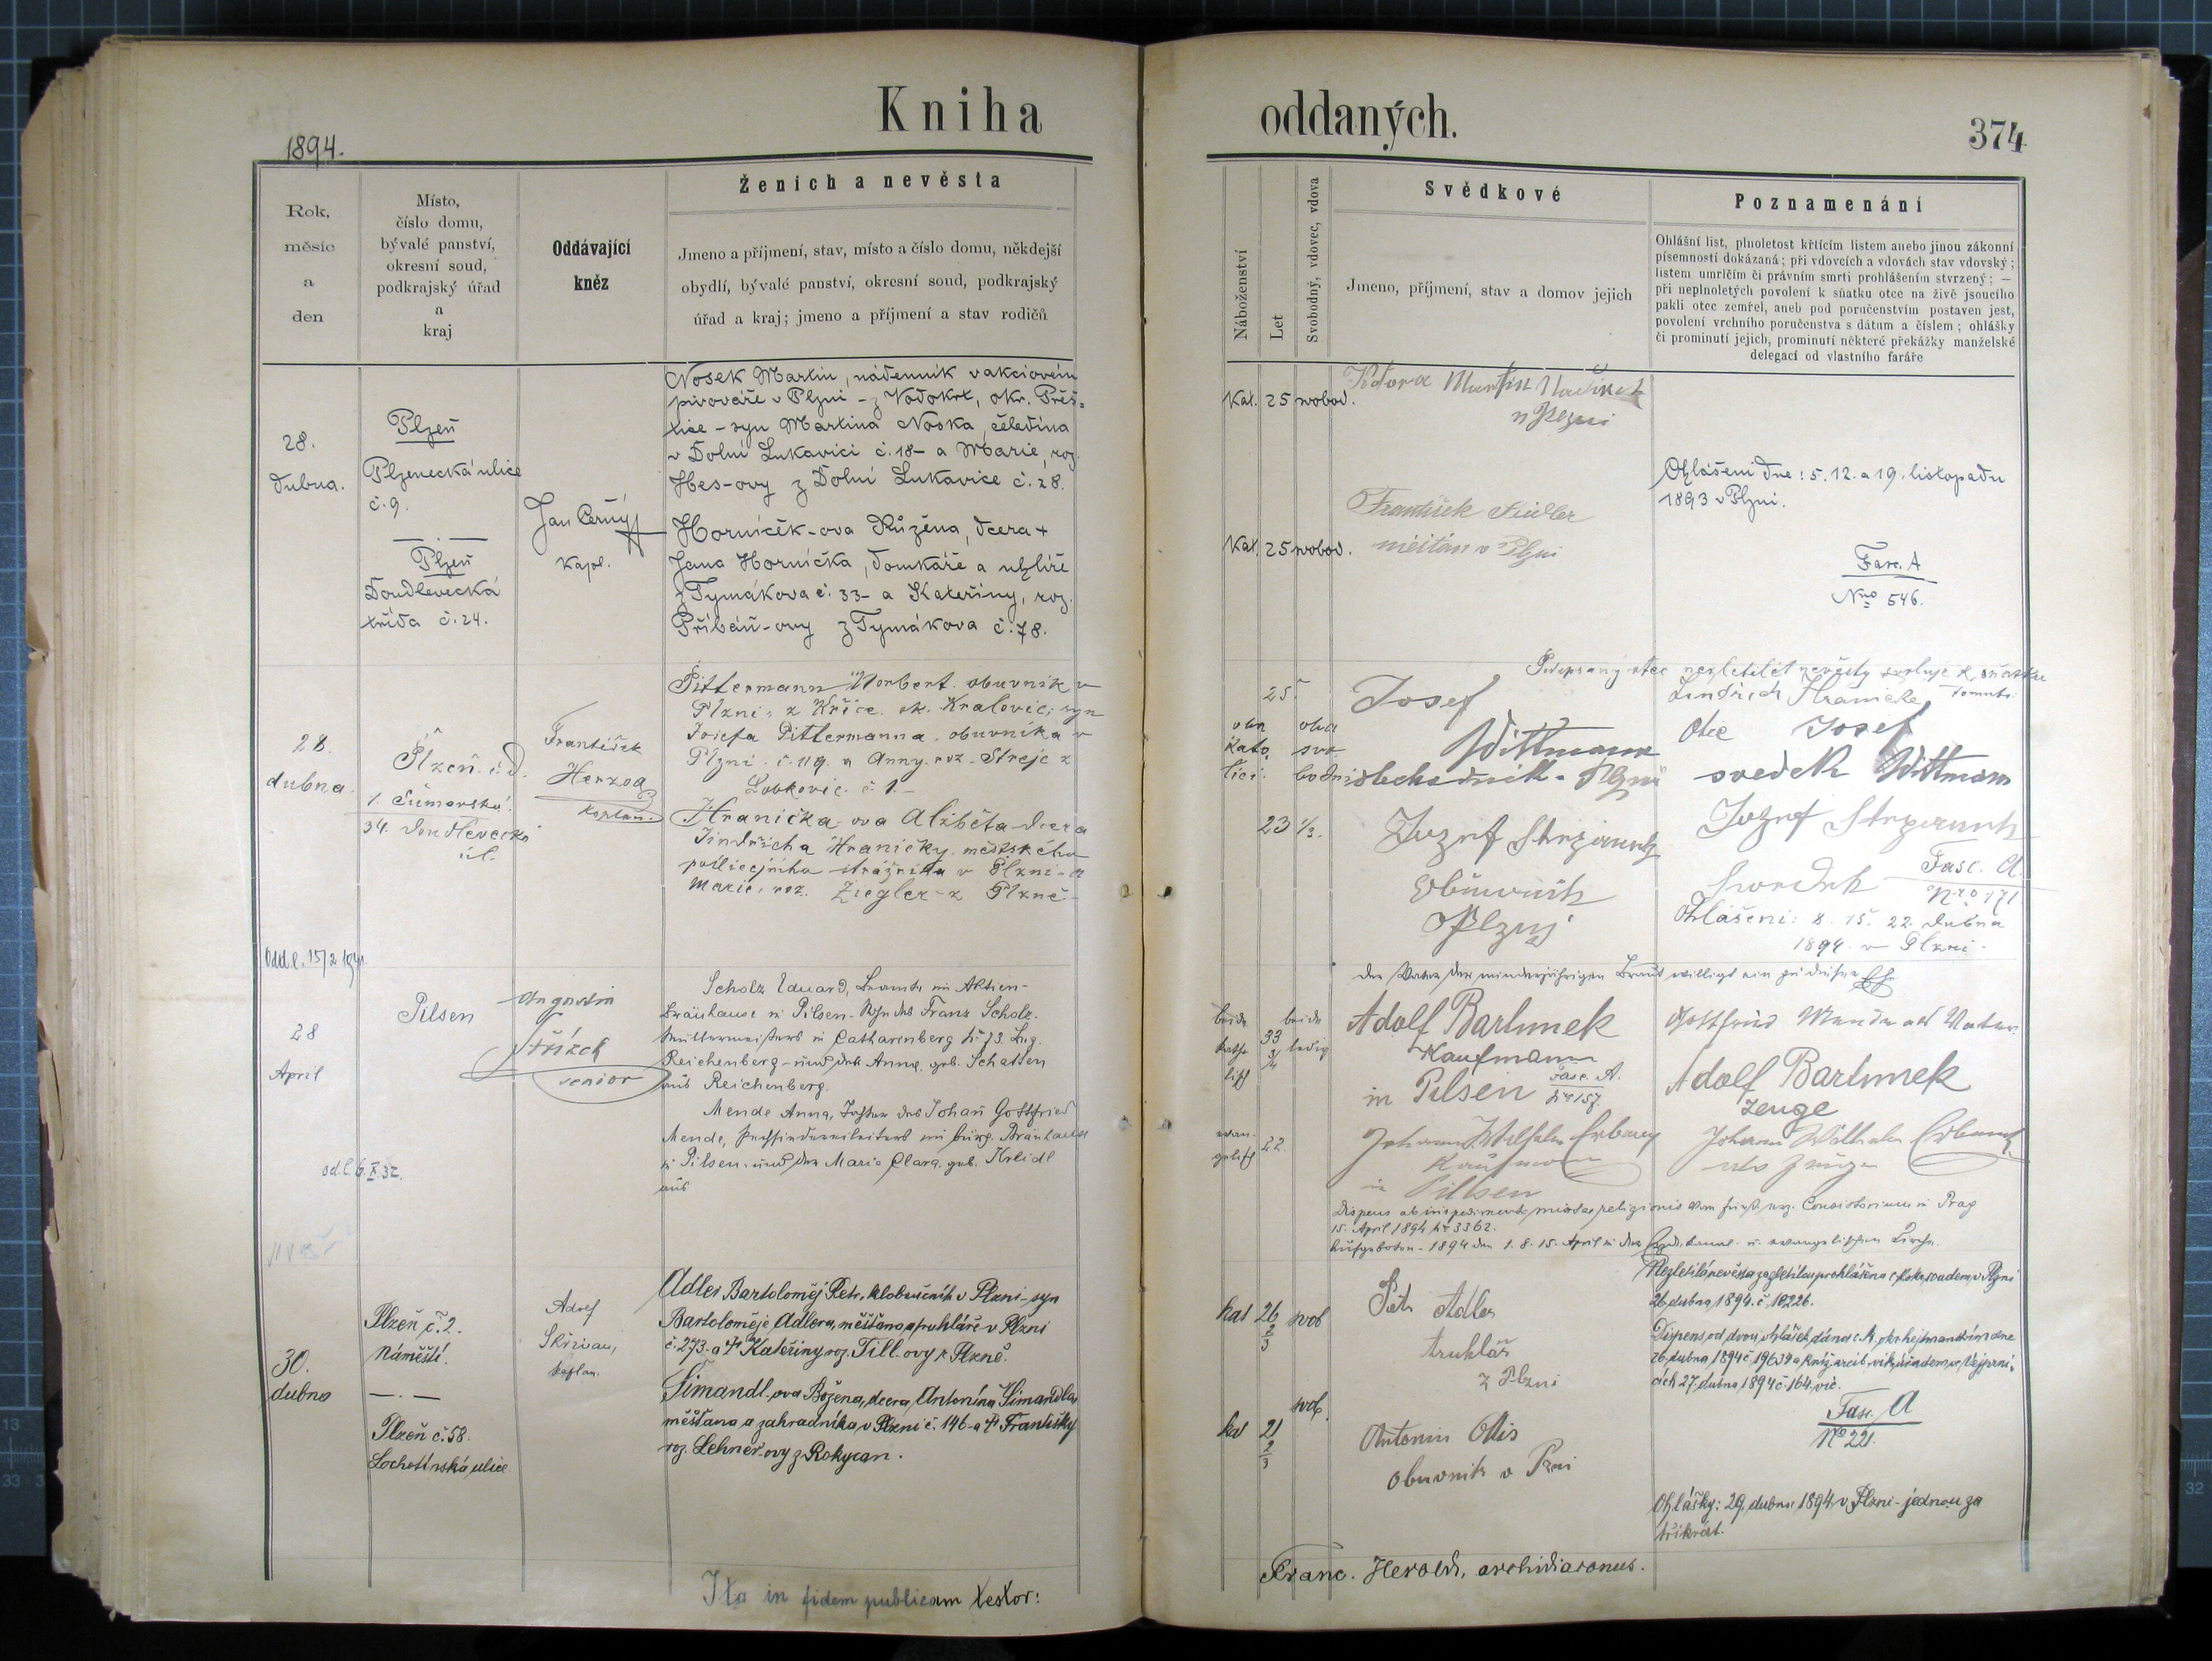 Kniha
oddaných.
374
1894.
Rok,
měsíc
a
den
Místo,
číslo domu,
bývalé panství,
okresní soud,
podkrajský úřad
a
kraj
Oddávající
kněz
Ženich a nevěsta
Jmeno a příjmení, stav, místo a číslo domu, někdejší
obydlí, bývalé panství, okresní soud, podkrajský
úřad a kraj; jmeno a příjmení a stav rodičů
Náboženství
Let
Svobodný, vdovec, vdova
Svědkové
Jmeno, příjmení, stav a domov jejich
Poznamenání
Ohlášní list, plnoletost křtícím listem anebo jinou zákonní
písemností dokázaná; při vdovcích a vdovách stav vdovský;
listem umrlčím či právním smrti prohlášením stvrzený; —
při neplnoletých povolení k sňatku otce na živě jsoucího
pakli otec zemřel, aneb pod poručenstvím postaven jest,
povolení vrchního poručenstva s dátum a číslem; ohlášky
či prominutí jejich, prominutí některé překážky manželské
delegací od vlastního faráře
28.
dubna.
Plzeň
Plzenecká ulice
č. 9.
Plzeň
Doudlevecká
třída č. 24.
Jan Černý
kapl.
Nosek Martin, nádenník v akciovém
pivováře v Plzni - z Vodokrt, okr. Přeš-
tice - syn Martina Noska, čeledína
v Dolní Lukavici č. 18 - a Marie, roz.
Hes-ovy z Dolní Lukavice č. 28.
Horníčěk-ova Růžěna, dcera +
Jana Horníčka, domkáře a uhlíře
z Tymákova č. 33 - a Kateřiny, roz.
Příbáň-ovy z Tymákova č. 78.
Kat. 25 svobod.
Martin
v Plzni
František Fiedler
měštan v Plzni
Kat. 25 svobod.
Ohlášeni dne: 5. 12. a 19. listopadu
1893 v Plzni.
Fasc. A
Nro 546.
28.
dubna
Plzeň. č. d.
1. Šumavská.
34. Doudlevecká
ul.
František
Herzog
kaplan.
Pittermann Norbert. obuvník v
Plzni, z Kříce. ok. Kralovic; syn
Josefa Pittermanna. obuvníka v
Plzni. č. 119. a Anny. roz. Strejc z
Lobkovic. č. 1. -
Hranička-ova Alžběta dcera
Jindřicha Hraničky. městského
policejního strážníka v Plzni - a
Marie, roz. Ziegler - z Plzně -
Podepsaný otec nezletilét nevěsty svoluje k sňatku
Jindřich Hranicke tomuto.
25.
oba
kato
lici.
oba
svo
bodni
23 1/2.
Josef
Wittmann
obchodník - Plzni
Otec Josef
svedek Wittmann
Jozef
Obuvník
Plzni
Jozef
Svedek
Fasc. A.
Nro 171
Ohlášeni: 8. 15. 22. dubna
1894. v Plzni.
28
April
Pilsen
Augustin
Střízek
senior
Scholz Eduard, Beamte im Aktien-
Bräuhause in Pilsen - Sohn des Franz Scholz.
Müllermeisters in Catharinberg № 73 Bzg.
Reichenberg - und der Anna, geb. Schatten
aus Reichenberg.
Mende Anna, Tochter des Johañ Gottfried
Mende, im bürg. Bräuhause
in Pilsen - und der Maria Clara, geb. Kreidl
aus
od.l. 6. X. 32.
Der Vater der minderjährigen Braut willigt ein zu dieser Ehe
beide
katho
lisch
33
3/4
beide
ledig
evan-
gelisch
22.
Adolf Bartunek
Kaufmann
in Pilsen
Fasc. A.
№ 157.
Johann Wilhelm
Kaufmann
in Pilsen
Gottfried Mende als Vater
Adolf Bartunek
Zeuge
Johann Wilhelm
als Zeuge
Dispens ab impedimento mixtae religionis vom fürst. erz. Consistorium in Prag
15. April 1894 № 3362.
Aufgeboten - 1894 den 1. 8. 15. April in der u. evangelischen Kirche.
30.
dubna
Plzeň č. 2.
Náměstí.
Plzeň č. 58.
Lochotínská ulice
Adolf
Skřivan,
kaplan.
Adler Bartoloměj Petr, kloboučník v Plzni - syn
Bartoloměje Adlera, měšťana a truhláře v Plzni
č. 273 - a + Kateřiny roz. Till-ovy z Plzně.
Šimandl-ova Božena, dcera Antonína Šimandla
měšťana a zahradníka v Plzni č. 146 - a + Františky
roz. Lehner-ovy z Rokycan.
kat 26 2/3 svob
kat 21 2/3 svob.
Petr Adler
truhlář
z Plzni
Antonin Ottis
obuvnik v Plzni
Nezletilá nevěsta za zletilou prohlášena c. k. okr. soudem v Plzni
26 dubna 1894. č. 10226.
Dispens od dvou ohlášek dána c. k. okr. hejtmanstvím dne
26. dubna 1894 č. 19634 a kníž. arcib. vik. úřadem ve Vejprni-
cích 27. dubna 1894 č. 164. vic.
Fasc. A
№ 221.
Ohlášky: 29. dubna 1894 v Plzni - jednou za
třikrát.
Ita in fidem publicam testor:
Franc. Herold, archidiaconus.